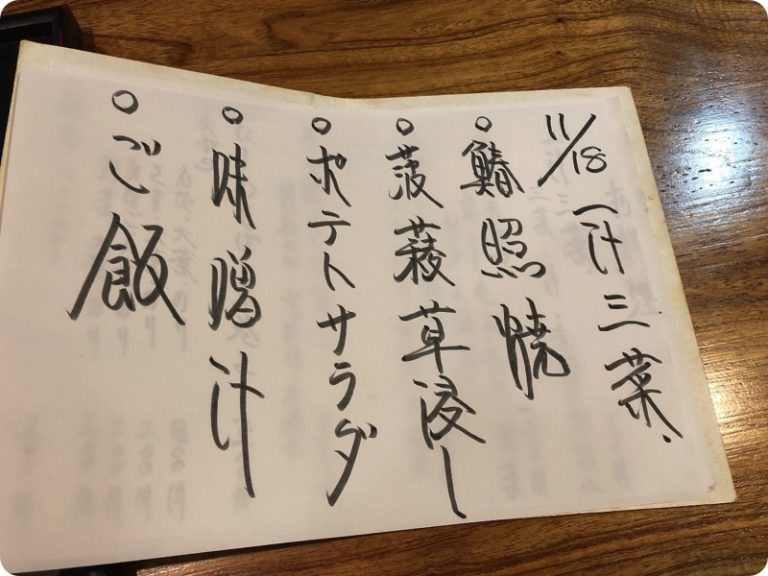 11/18 一汁三菜.
○鰆照焼
○菠薐草浸し
○ポテトサラダ
○味噌汁
○ご飯